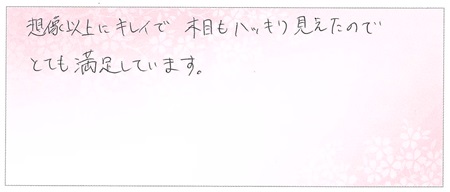 想像以上にキレイで 木目もハッキリ見えたので
とても満足しています。